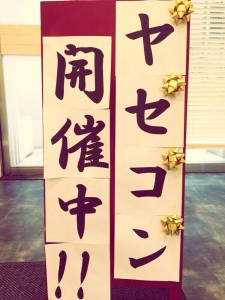 ヤセコン
開催中!!